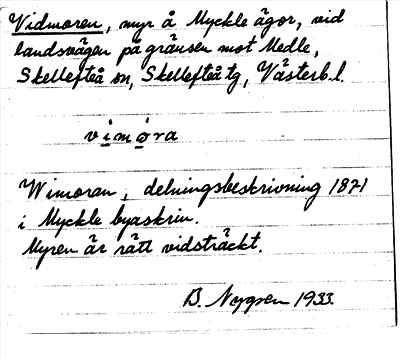 Vidmoren, myr å Myckle ägor, vid
landsvägen på gränsen mot Medle,
Skellefteå sn, Skellefteå tg, Västerb. l.
vimøra
Wimoran, delningsbeskrivning 1871
i Myckle byaskrin.
Myren är rätt vidsträckt.
B. Nygren 1933.